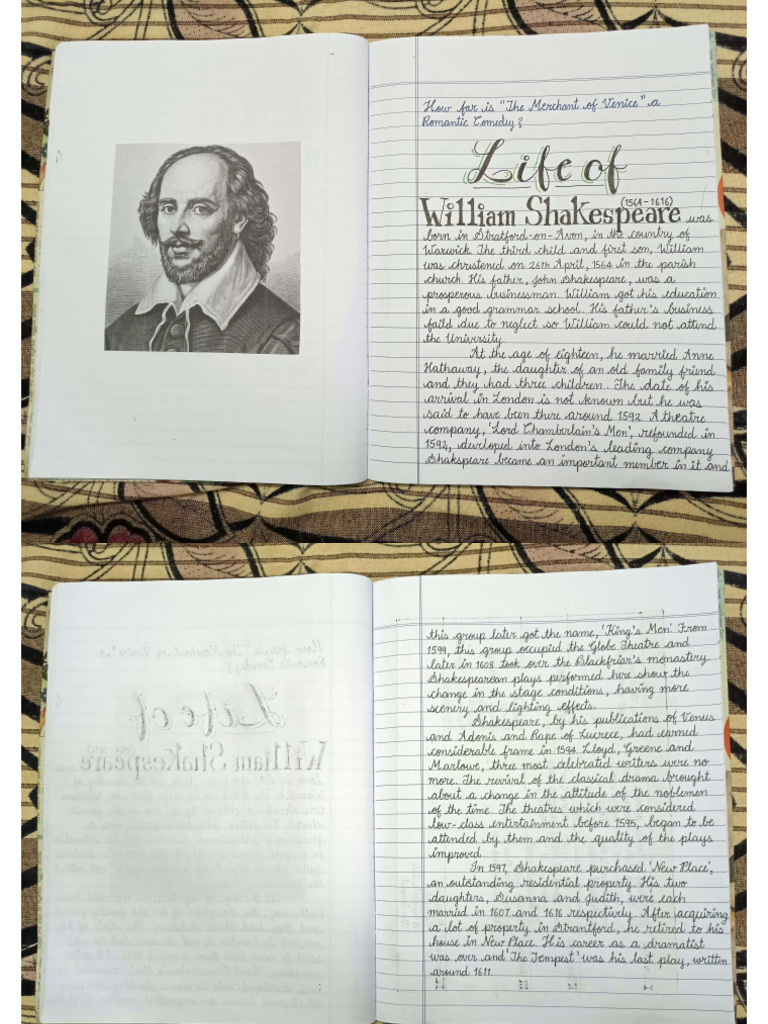 How far is "The Merchant of Venice" a
Romantic Comedy?
Life of
William Shakespeare (1564-1616) was
born in Stratford-on-Avon, in the country of
Warwick. The third child and first son, William
was christened on 26th April, 1564 in the parish
church. His father, John Shakespeare, was a
prosperous businessman. William got his education
in a good grammar school. His father's business
faild due to neglect so William could not attend
the University.
At the age of eighteen, he married Anne
Hathaway, the daughter of an old family friend
and they had three children. The date of his
arrival in London is not known but he was
said to have been there around 1592. A theatre
company, 'Lord Chamberlain's Men', refounded in
1592, developed into London's leading company
Shakspeare became an important member in it and
this group later got the name, 'King's Men'. From
1599, this group occupied the Globe Theatre and
later in 1608 took over the Blackfriar's monastery.
Shakespearean plays performed here show the
change in the stage conditions, having more
scenery and lighting effects.
Shakespeare, by his publications of Venus
and Adonis and Rape of Lucrece, had earned
considerable frame in 1594. Lloyd, Greene and
Marlowe, three most celebrated writers were no
more. The revival of the classical drama brought
about a change in the attitude of the noblemen
of the time. The theatres which were considered
low-class entertainment before 1595, began to be
attended by them and the quality of the plays
improved.
In 1597, Shakespeare purchased 'New Place',
an outstanding residential property. His two
daughters, Susanna and Judith, were each
married in 1607 and 1616 respectively. After acquiring
a lot of property in Strantford, he retired to his
house in New Place. His career as a dramatist
was over and 'The Tempest' was his last play, written
around 1611.